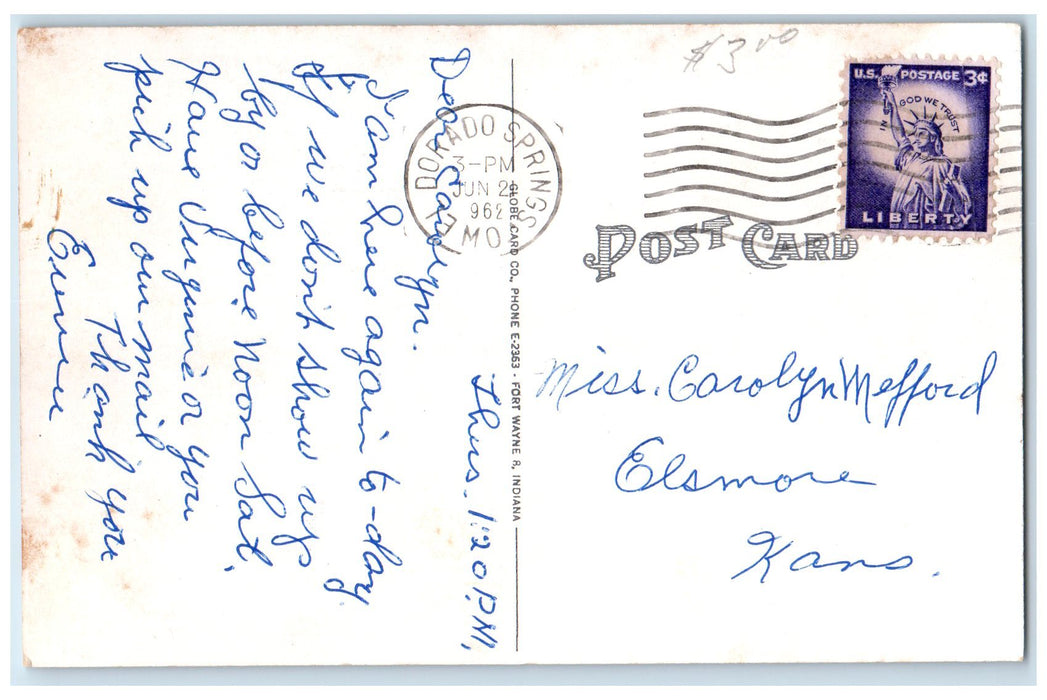 $3.00
Thurs. 1:20 P.M.
Dear Carolyn.
I am here again to-day
If we don't show up
by or before Noon Sat.
Have Jugenie or you
pick up our mail
Thank You
GLOBE CARD CO., PHONE E-2363 - FORT WAYNE 8, INDIANA
EL DORADO SPRINGS
3-PM
JUN 21
1962
MO.
U.S. POSTAGE 3¢
IN GOD WE TRUST
LIBERTY
POST CARD
Miss. Carolyn Mefford
Elsmore
Kans.